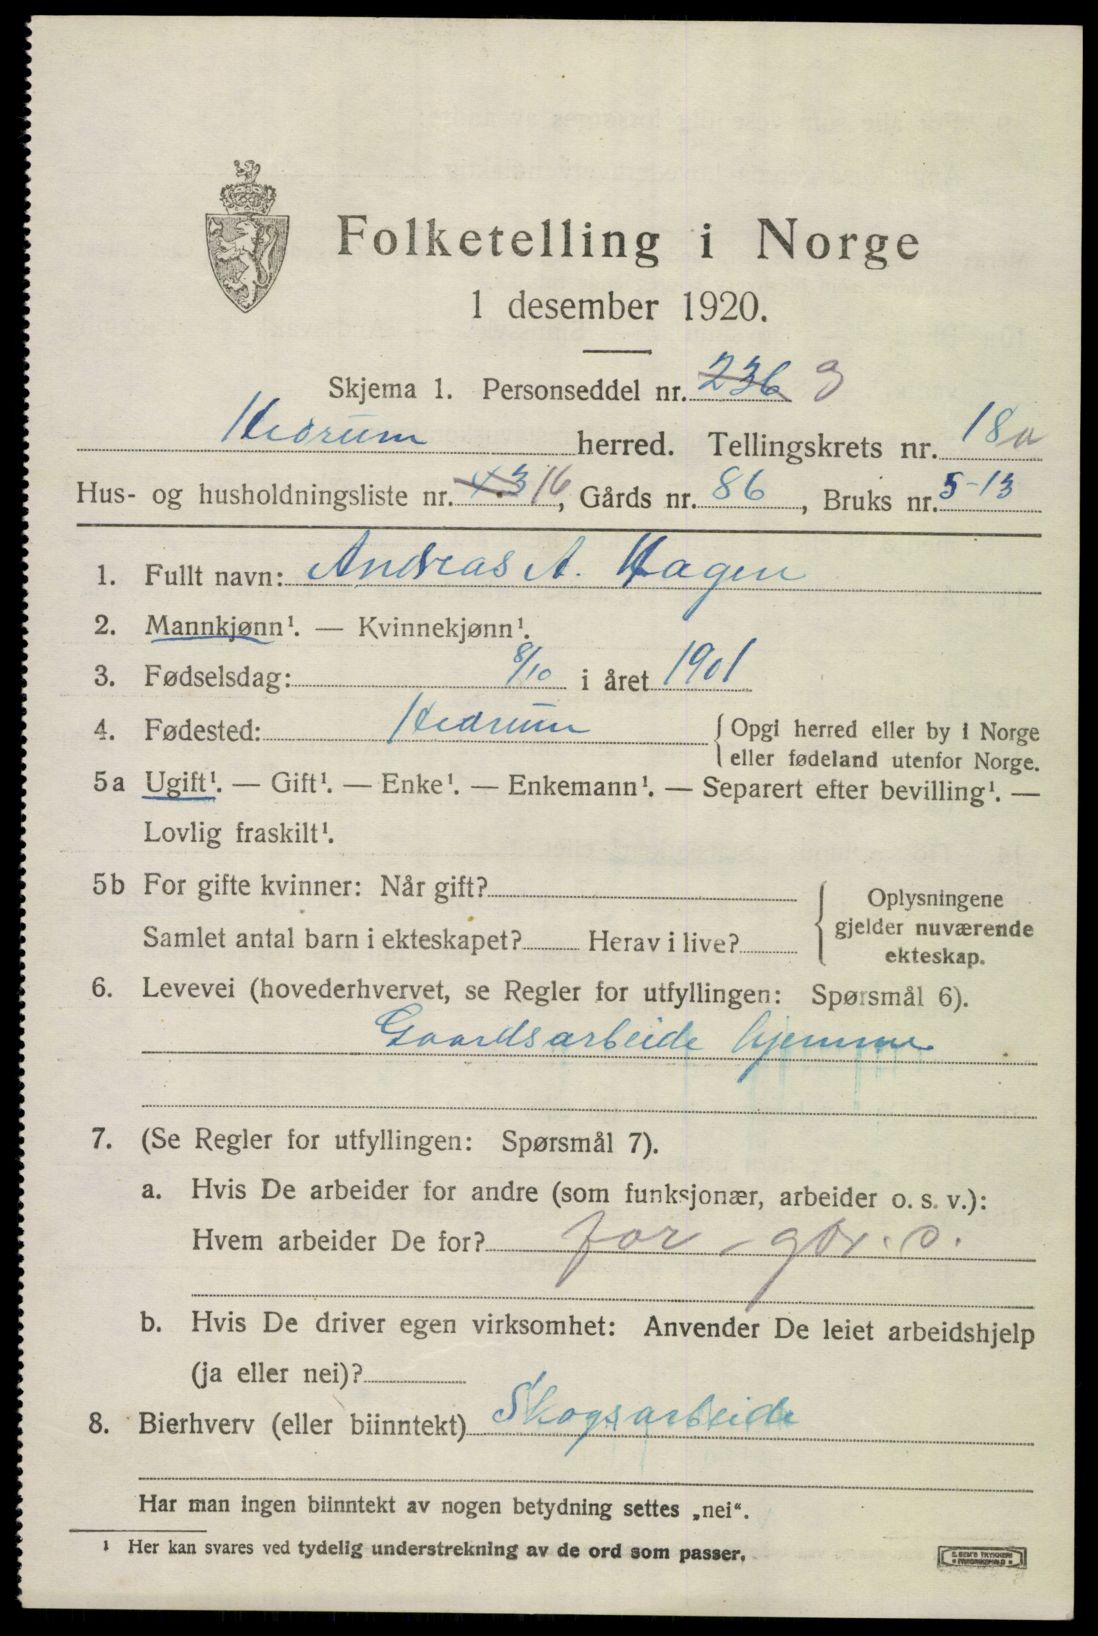 Folketelling i Norge
1 desember 1920.
Skjema 1. Personseddel nr. 236 3
Hedrum herred. Tellingskrets nr. 18a
Hus- og husholdningsliste nr. 43 16, Gårds nr. 86, Bruks nr. 5-13
1. Fullt navn: Andreas A. Hagen
2. Mannkjønn¹. — Kvinnekjønn¹.
3. Fødselsdag: 8/10 i året 1901
4. Fødested: Hedrum { Opgi herred eller by i Norge
eller fødeland utenfor Norge.
5a Ugift¹. — Gift¹. — Enke¹. — Enkemann¹. — Separert efter bevilling¹. —
Lovlig fraskilt¹.
5b For gifte kvinner: Når gift?
Samlet antal barn i ekteskapet? Herav i live?
{ Oplysningene
gjelder nuværende
ekteskap.
6. Levevei (hovederhvervet, se Regler for utfyllingen: Spørsmål 6).
Gaardsarbeide hjemme
7. (Se Regler for utfyllingen: Spørsmål 7).
a. Hvis De arbeider for andre (som funksjonær, arbeider o. s. v.):
Hvem arbeider De for? far
b. Hvis De driver egen virksomhet: Anvender De leiet arbeidshjelp
(ja eller nei)?
8. Bierhverv (eller biinntekt) Skogsarbeide
Har man ingen biinntekt av nogen betydning settes „nei“.
¹ Her kan svares ved tydelig understrekning av de ord som passer.